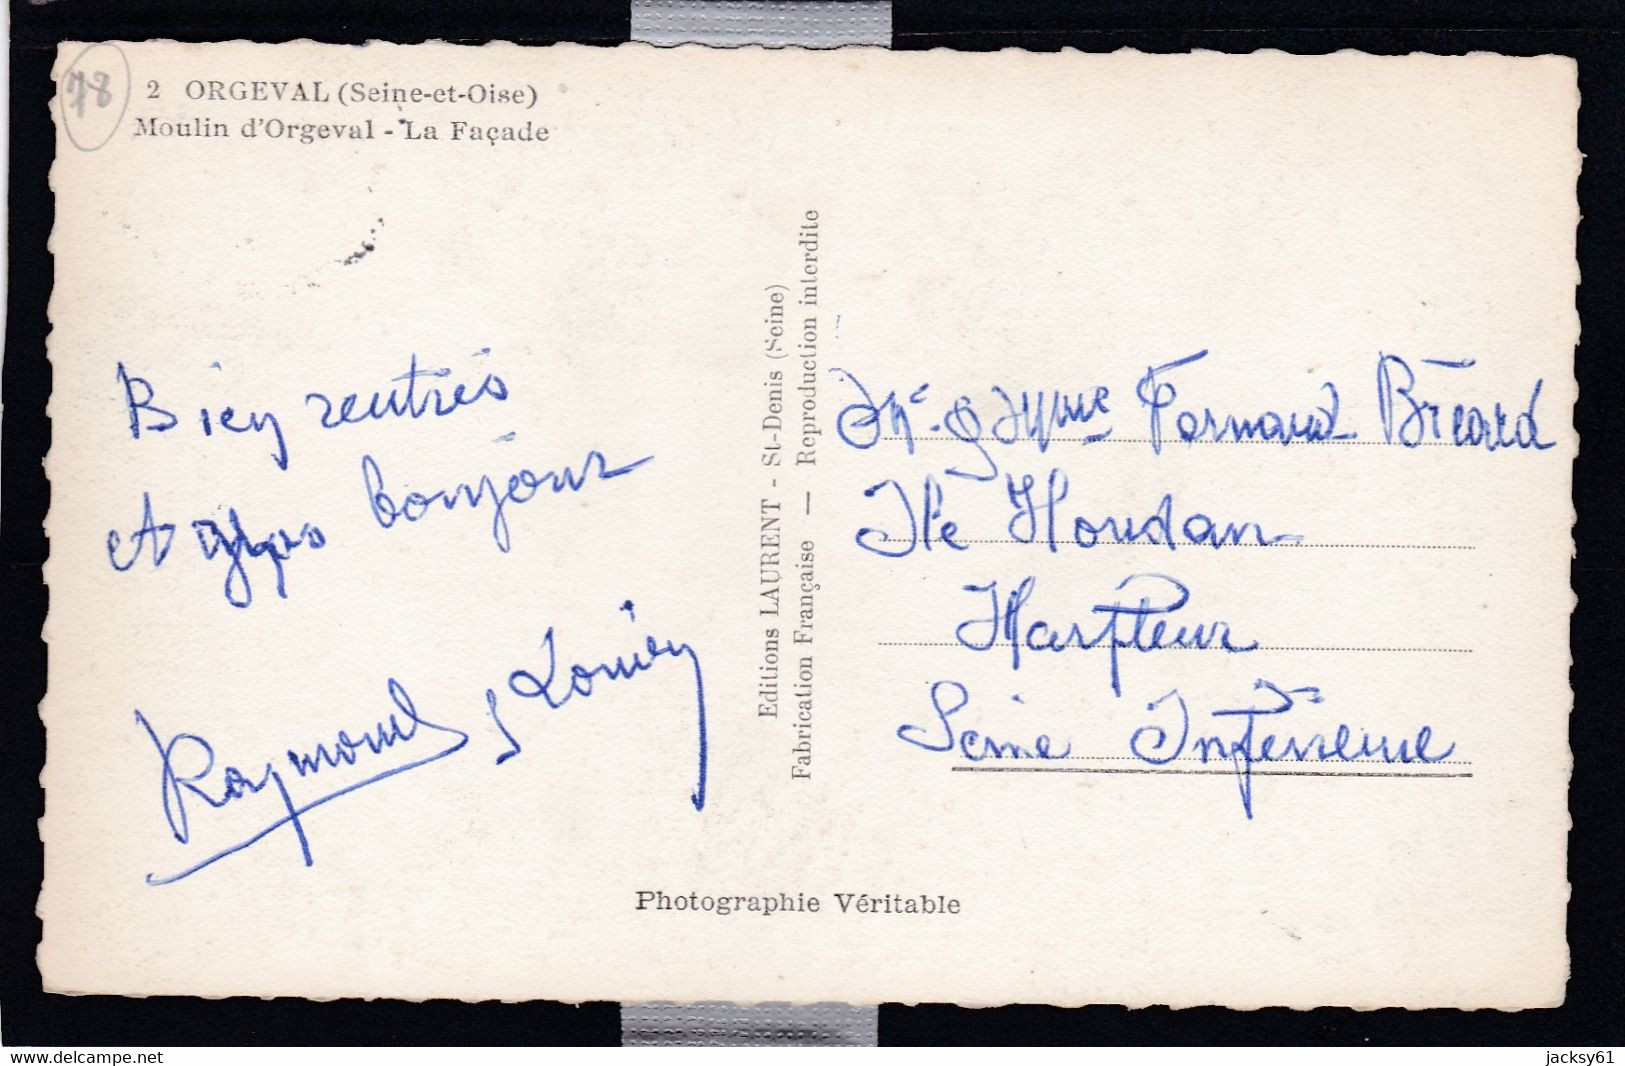 78
2 ORGEVAL (Seine-et-Oise)
Moulin d'Orgeval - La Façade
Bien rentrés
et bonjour
Raymond & Louis
Editions LAURENT - St-Denis (Seine)
Fabrication Française — Reproduction interdite
Mr & Mme Fernand Bicard
Houdan
Harfleur
Seine Inférieure
Photographie Véritable
delcampe.net
jacksy61